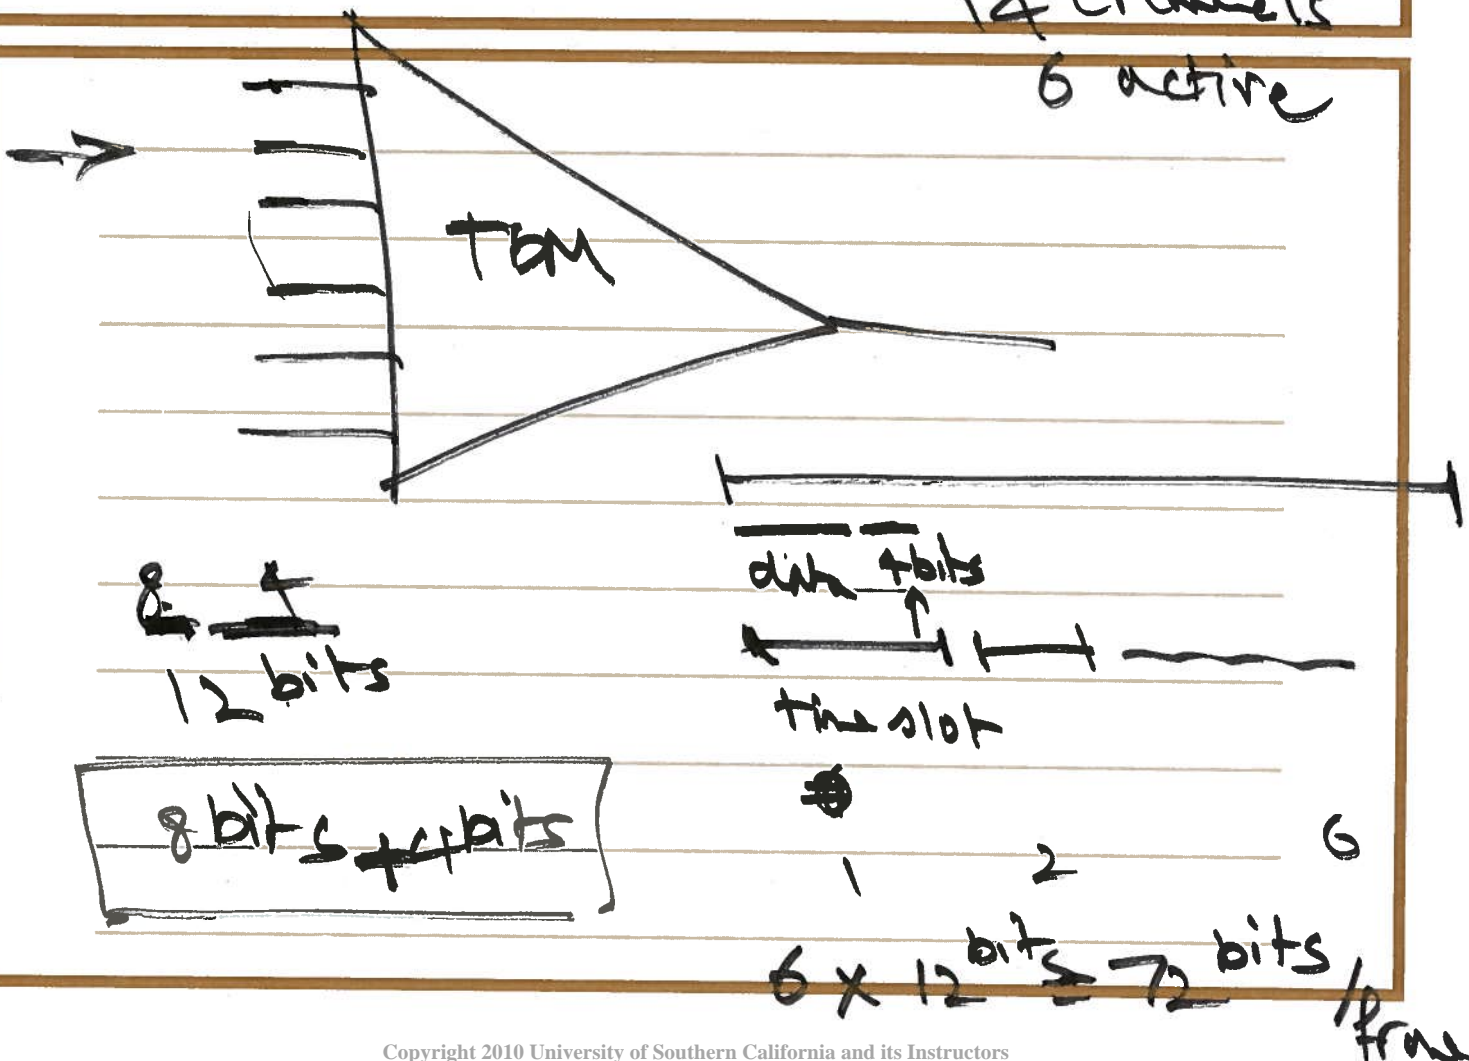 14 channels
6 active
TDM
data 4 bits
8 4
12 bits
time slot
8 bits + 4 bits
1 2 6
6 x 12 bits = 72 bits /frame
Copyright 2010 University of Southern California and its Instructors